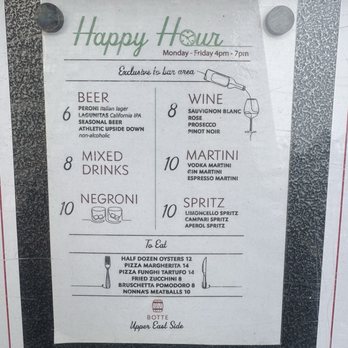 Happy Hour
Monday - Friday 4pm - 7pm
Exclusive to bar area
6 BEER
PERONI Italian lager
LAGUNITAS California IPA
SEASONAL BEER
ATHLETIC UPSIDE DOWN
non-alcoholic
8 WINE
SAUVIGNON BLANC
ROSE
PROSECCO
PINOT NOIR
8 MIXED
DRINKS
10 MARTINI
VODKA MARTINI
GIN MARTINI
ESPRESSO MARTINI
10 NEGRONI
10 SPRITZ
LIMONCELLO SPRITZ
CAMPARI SPRITZ
APEROL SPRITZ
To Eat
HALF DOZEN OYSTERS 12
PIZZA MARGHERITA 14
PIZZA FUNGHI TARTUFO 14
FRIED ZUCCHINI 8
BRUSCHETTA POMODORO 8
NONNA'S MEATBALLS 10
BOTTE
Upper East Side